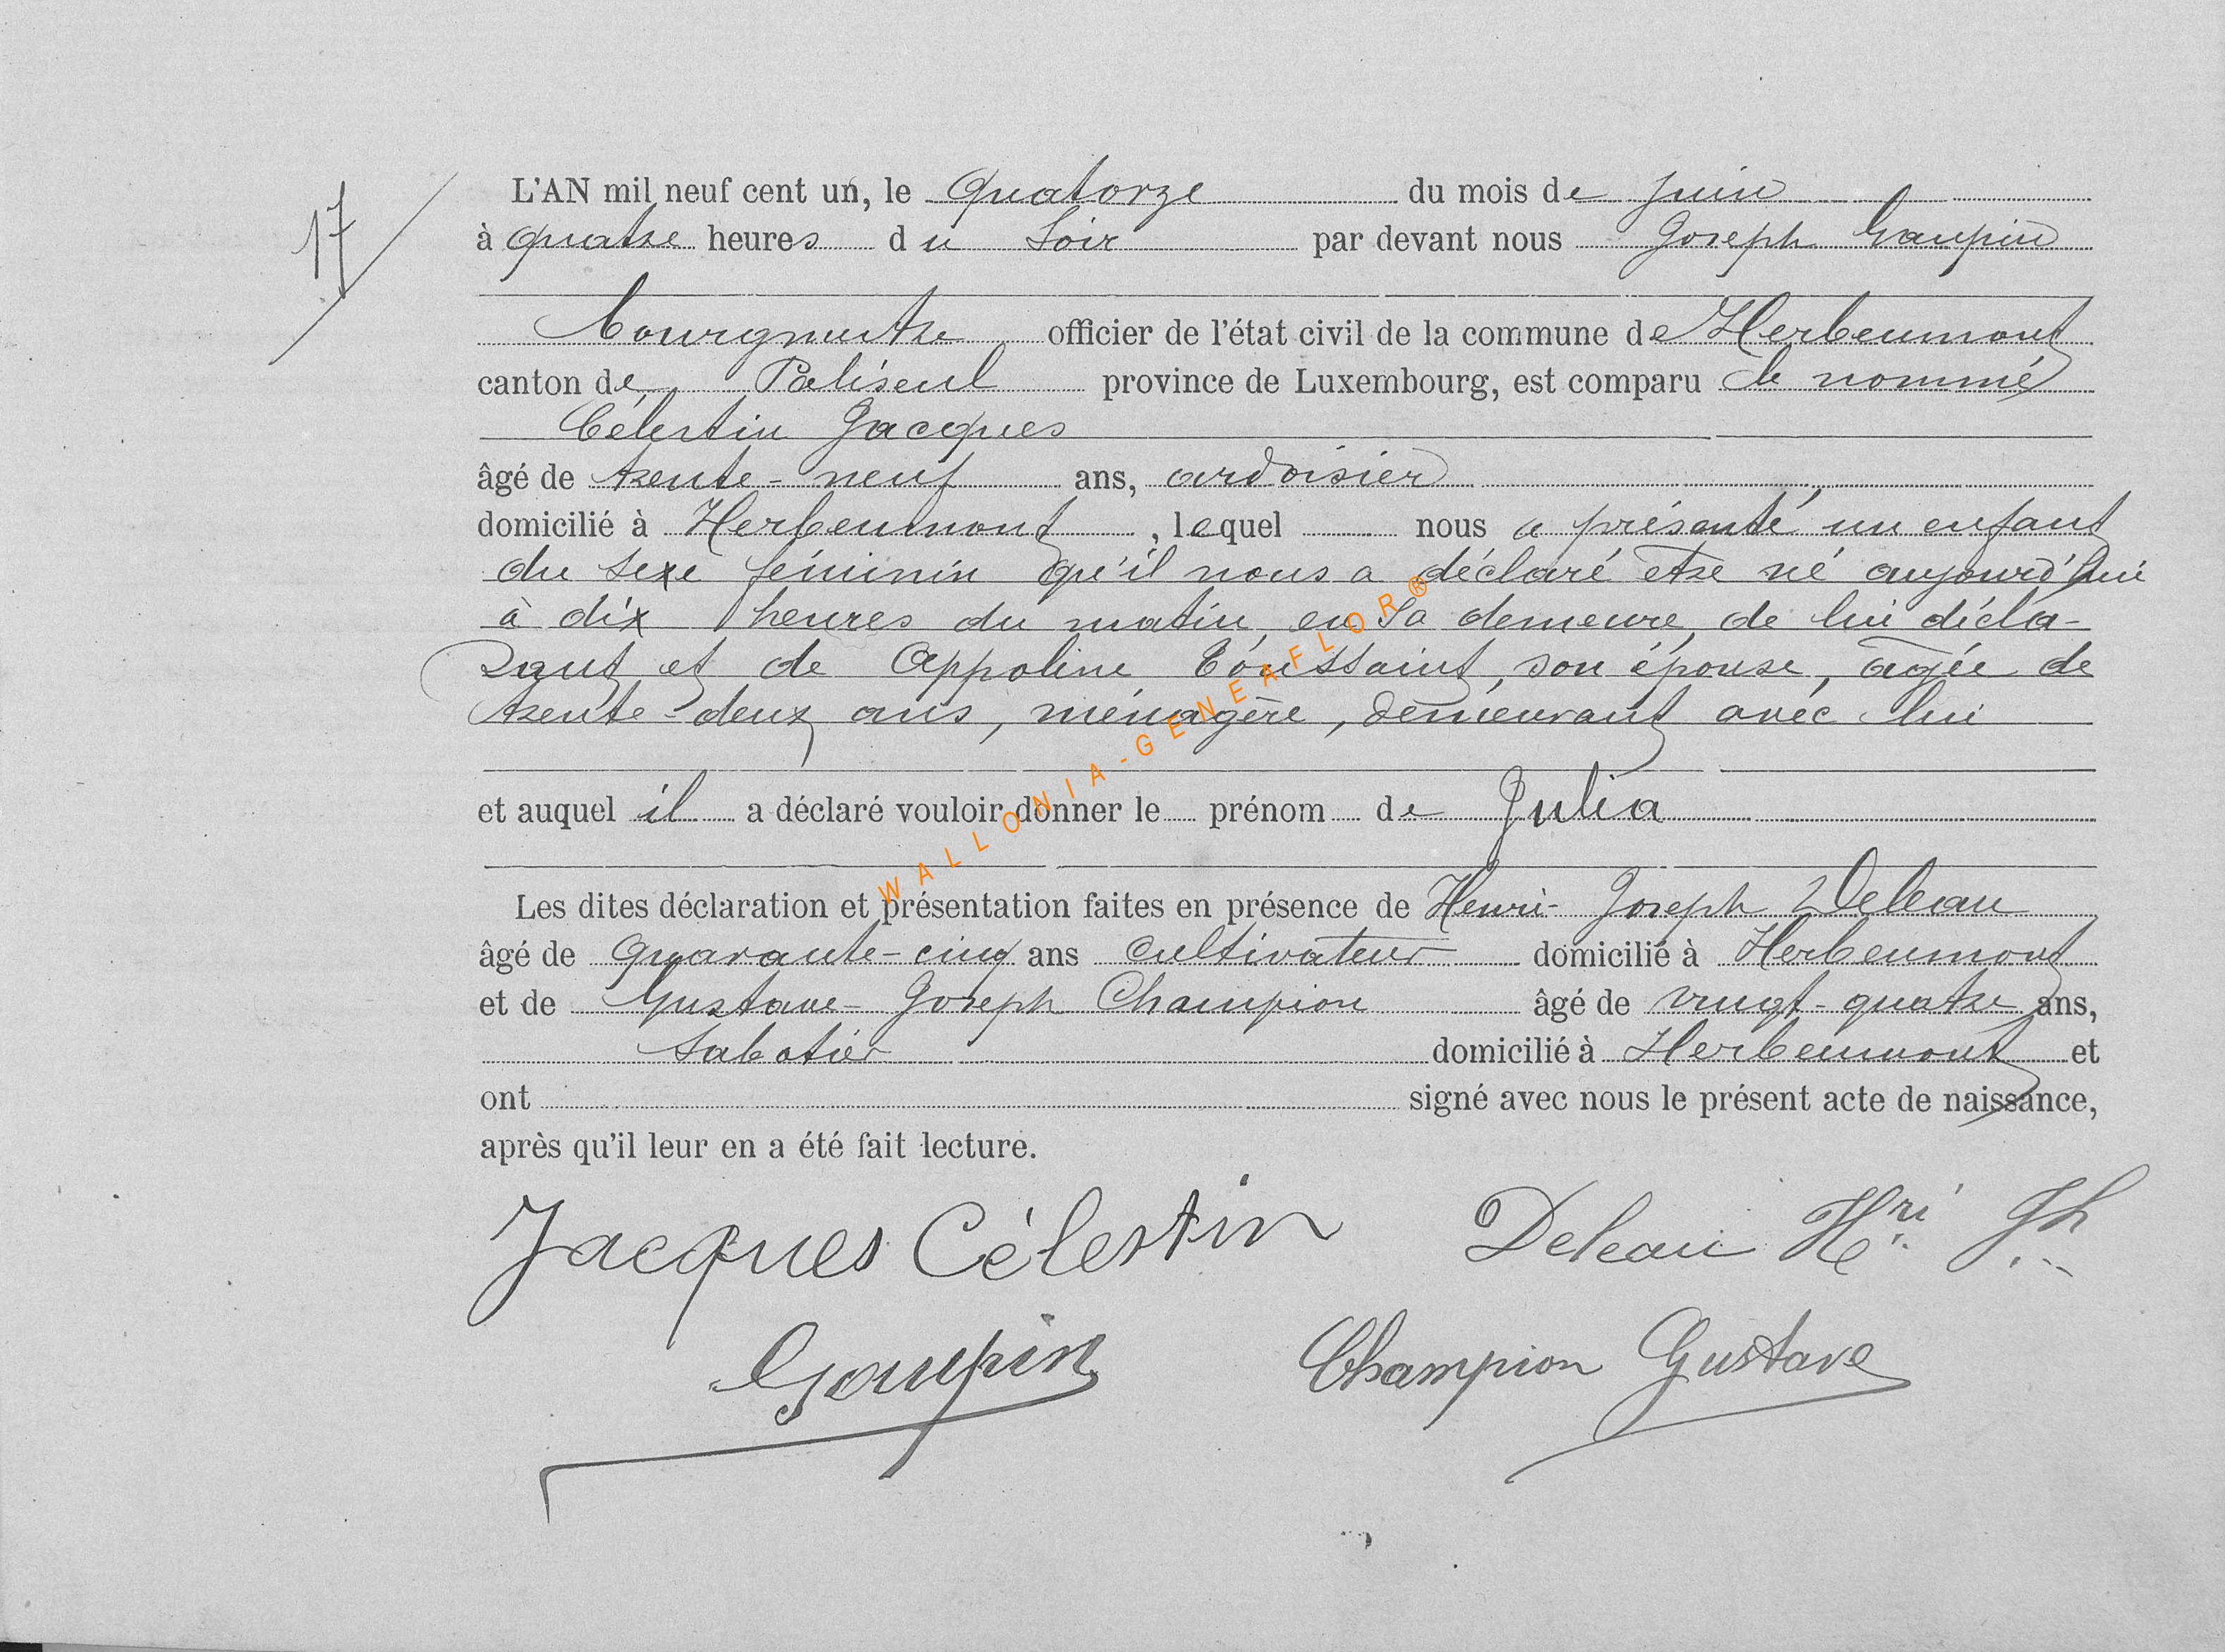 17
L'AN mil neuf cent un, le quatorze du mois de Juin
à quatre heures du Soir par devant nous Joseph Gaupin
Bourgmestre officier de l'état civil de la commune de Herbeumont
canton de Paliseul province de Luxembourg, est comparu le nommé
Célestin Jacques
âgé de trente-neuf ans, ardoisier
domicilié à Herbeumont, lequel nous a présenté un enfant
du sexe féminin qu'il nous a déclaré être né aujourd'hui
à dix heures du matin, en sa demeure, de lui décla-
rant et de Appoline Toussaint, son épouse, âgée de
trente-deux ans, ménagère, demeurant avec lui
et auquel il a déclaré vouloir donner le prénom de Julia
Les dites déclaration et présentation faites en présence de Henri-Joseph Deleau
âgé de quarante-cinq ans cultivateur domicilié à Herbeumont
et de Gustave-Joseph Champion âgé de vingt-quatre ans,
sabotier domicilié à Herbeumont et
ont signé avec nous le présent acte de naissance,
après qu'il leur en a été fait lecture.
Jacques Célestin Deleau Hri Jh
Gaupin Champion Gustave
WALLONIA-GENEAFLOR®